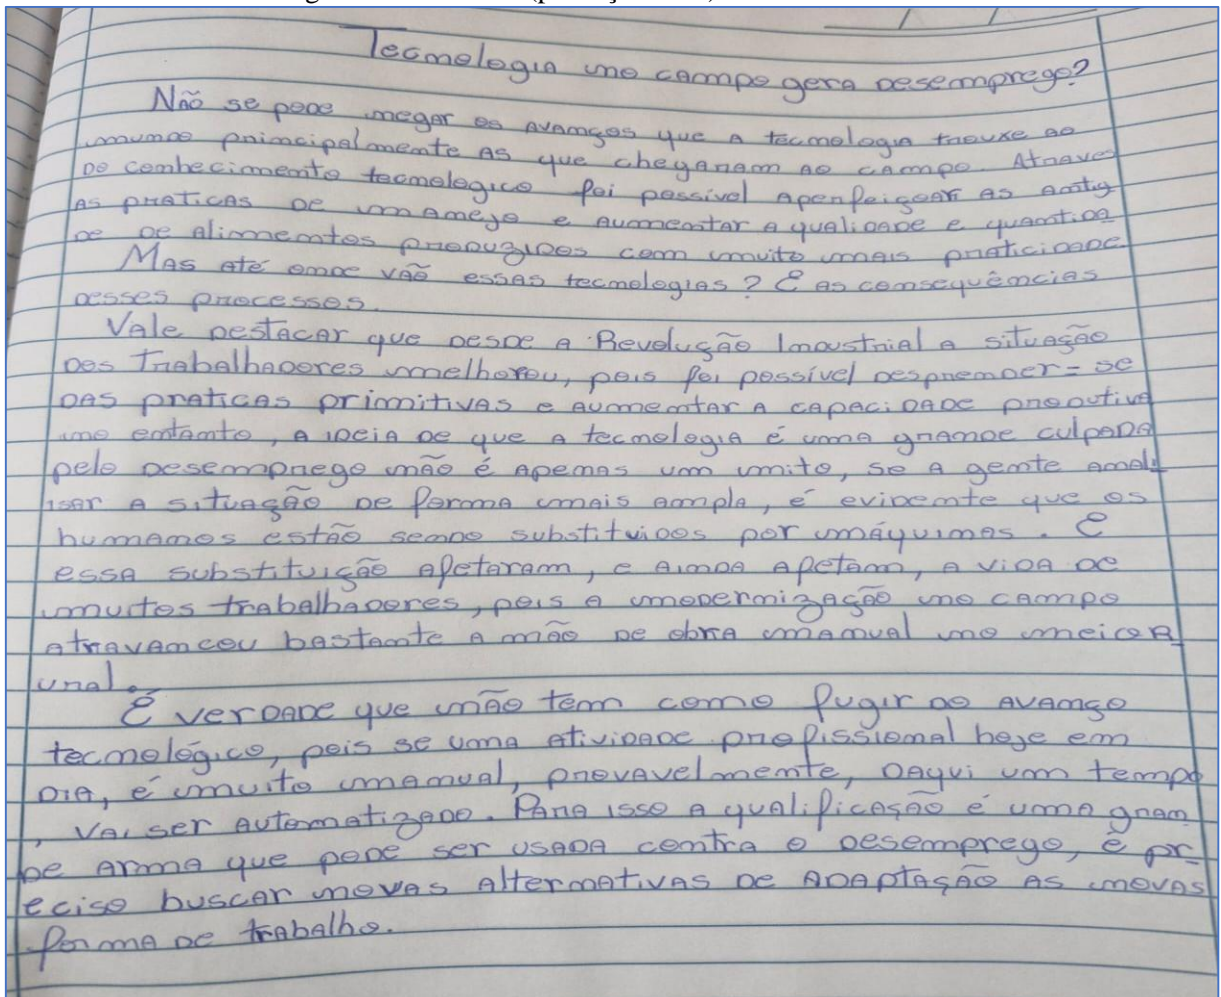 Tecnologia no campo gera desemprego?
Não se pode negar os avanços que a tecnologia trouxe ao
mundo principalmente as que chegaram ao campo. Atraves
do conhecimento tecnologico foi possível aperfeiçoar as antig
as praticas de manejo e aumentar a qualidade e quantida
de de alimentos produzidos com muito mais praticidade.
Mas até onde vão essas tecnologias? E as consequências
desses processos.
Vale destacar que desde a Revolução Industrial a situação
dos Trabalhadores melhorou, pois foi possível desprender-se
das praticas primitivas e aumentar a capacidade produtiva
no entanto, a ideia de que a tecnologia é uma grande culpada
pelo desemprego não é apenas um mito, se a gente anali
isar a situação de forma mais ampla, é evidente que os
humanos estão sendo substituidos por máquinas. E
essa substituição afetaram, e ainda afetam, a vida de
muitos trabalhadores, pois a modernização no campo
atravancou bastante a mão de obra manual no meio
rural.
É verdade que não tem como fugir do avanço
tecnológico, pois se uma atividade profissional hoje em
dia, é muito manual, provavelmente, daqui um tempo
, vai ser automatizado. Para isso a qualificação é uma gran
de arma que pode ser usada contra o desemprego, é pr
eciso buscar novas alternativas de adaptação as novas
forma de trabalho.